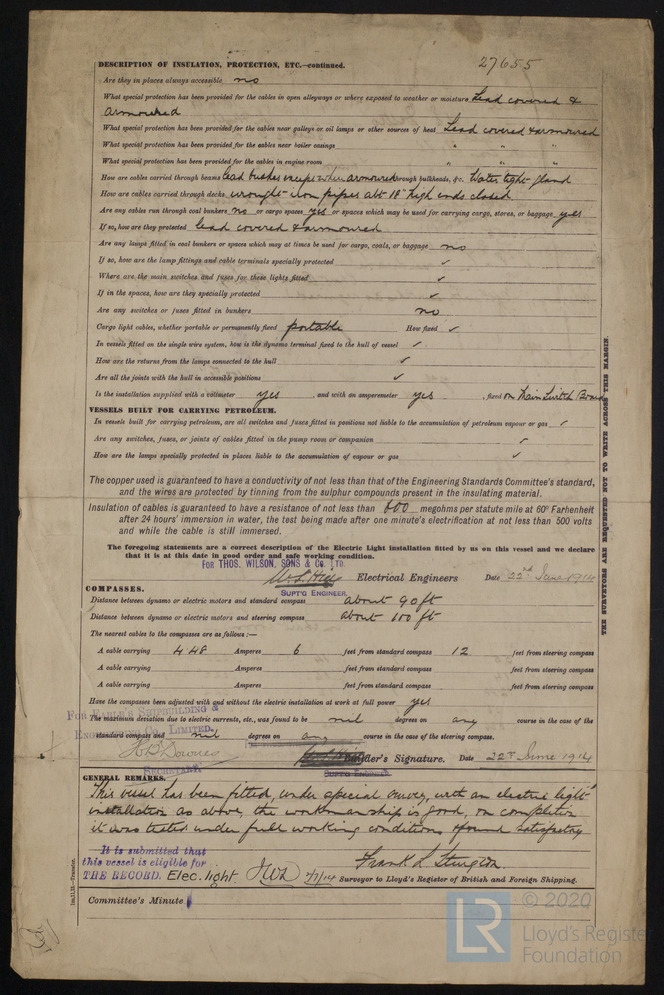 27655
DESCRIPTION OF INSULATION, PROTECTION, ETC.—continued.
Are they in places always accessible no
What special protection has been provided for the cables in open alleyways or where exposed to weather or moisture Lead covered &
armoured
What special protection has been provided for the cables near galleys or oil lamps or other sources of heat Lead covered & armoured
What special protection has been provided for the cables near boiler casings " " "
What special protection has been provided for the cables in engine room " " "
How are cables carried through beams lead bushes except when armoured through bulkheads, &c. Water tight gland
How are cables carried through decks wrought iron pipes abt 18" high ends closed
Are any cables run through coal bunkers no or cargo spaces yes or spaces which may be used for carrying cargo, stores, or baggage yes
If so, how are they protected lead covered & armoured
Are any lamps fitted in coal bunkers or spaces which may at times be used for cargo, coals, or baggage no
If so, how are the lamp fittings and cable terminals specially protected ✓
Where are the main switches and fuses for these lights fitted ✓
If in the spaces, how are they specially protected ✓
Are any switches or fuses fitted in bunkers no
Cargo light cables, whether portable or permanently fixed portable How fixed ✓
In vessels fitted on the single wire system, how is the dynamo terminal fixed to the hull of vessel ✓
How are the returns from the lamps connected to the hull ✓
Are all the joints with the hull in accessible positions ✓
Is the installation supplied with a voltmeter yes , and with an amperemeter yes , fixed on Main Switch Board
VESSELS BUILT FOR CARRYING PETROLEUM.
In vessels built for carrying petroleum, are all switches and fuses fitted in positions not liable to the accumulation of petroleum vapour or gas ✓
Are any switches, fuses, or joints of cables fitted in the pump room or companion ✓
How are the lamps specially protected in places liable to the accumulation of vapour or gas ✓
The copper used is guaranteed to have a conductivity of not less than that of the Engineering Standards Committee's standard,
and the wires are protected by tinning from the sulphur compounds present in the insulating material.
Insulation of cables is guaranteed to have a resistance of not less than 600 megohms per statute mile at 60° Farhenheit
after 24 hours' immersion in water, the test being made after one minute's electrification at not less than 500 volts
and while the cable is still immersed.
The foregoing statements are a correct description of the Electric Light installation fitted by us on this vessel and we declare
that it is at this date in good order and safe working condition.
FOR THOS. WILSON, SONS & Co. LTD.
Electrical Engineers Date 22nd June 1914
SUPT'G ENGINEER.
COMPASSES.
Distance between dynamo or electric motors and standard compass about 90 ft
Distance between dynamo or electric motors and steering compass about 100 ft
The nearest cables to the compasses are as follows:—
A cable carrying 4.48 Amperes 6 feet from standard compass 12 feet from steering compass
A cable carrying Amperes feet from standard compass feet from steering compass
A cable carrying Amperes feet from standard compass feet from steering compass
Have the compasses been adjusted with and without the electric installation at work at full power yes
FOR EARLE'S SHIPBUILDING &
The maximum deviation due to electric currents, etc., was found to be nil degrees on any course in the case of the
LIMITED.
standard compass and nil degrees on any course in the case of the steering compass.
Downes Builder's Signature. Date 22d June 1914
SECRETARY. SUPT'G ENGINEER.
GENERAL REMARKS.
This vessel has been fitted, under special survey, with an electric light
installation as above, the workmanship is good, on completion
it was tested under full working conditions & found satisfactory
It is submitted that
this vessel is eligible for
THE RECORD. Elec. light JWD 7/7/14
Frank L Sturgeon.
Surveyor to Lloyd's Register of British and Foreign Shipping.
Committee's Minute
THE SURVEYORS ARE REQUESTED NOT TO WRITE ACROSS THIS MARGIN.
LR
© 2020
Lloyd's Register
Foundation